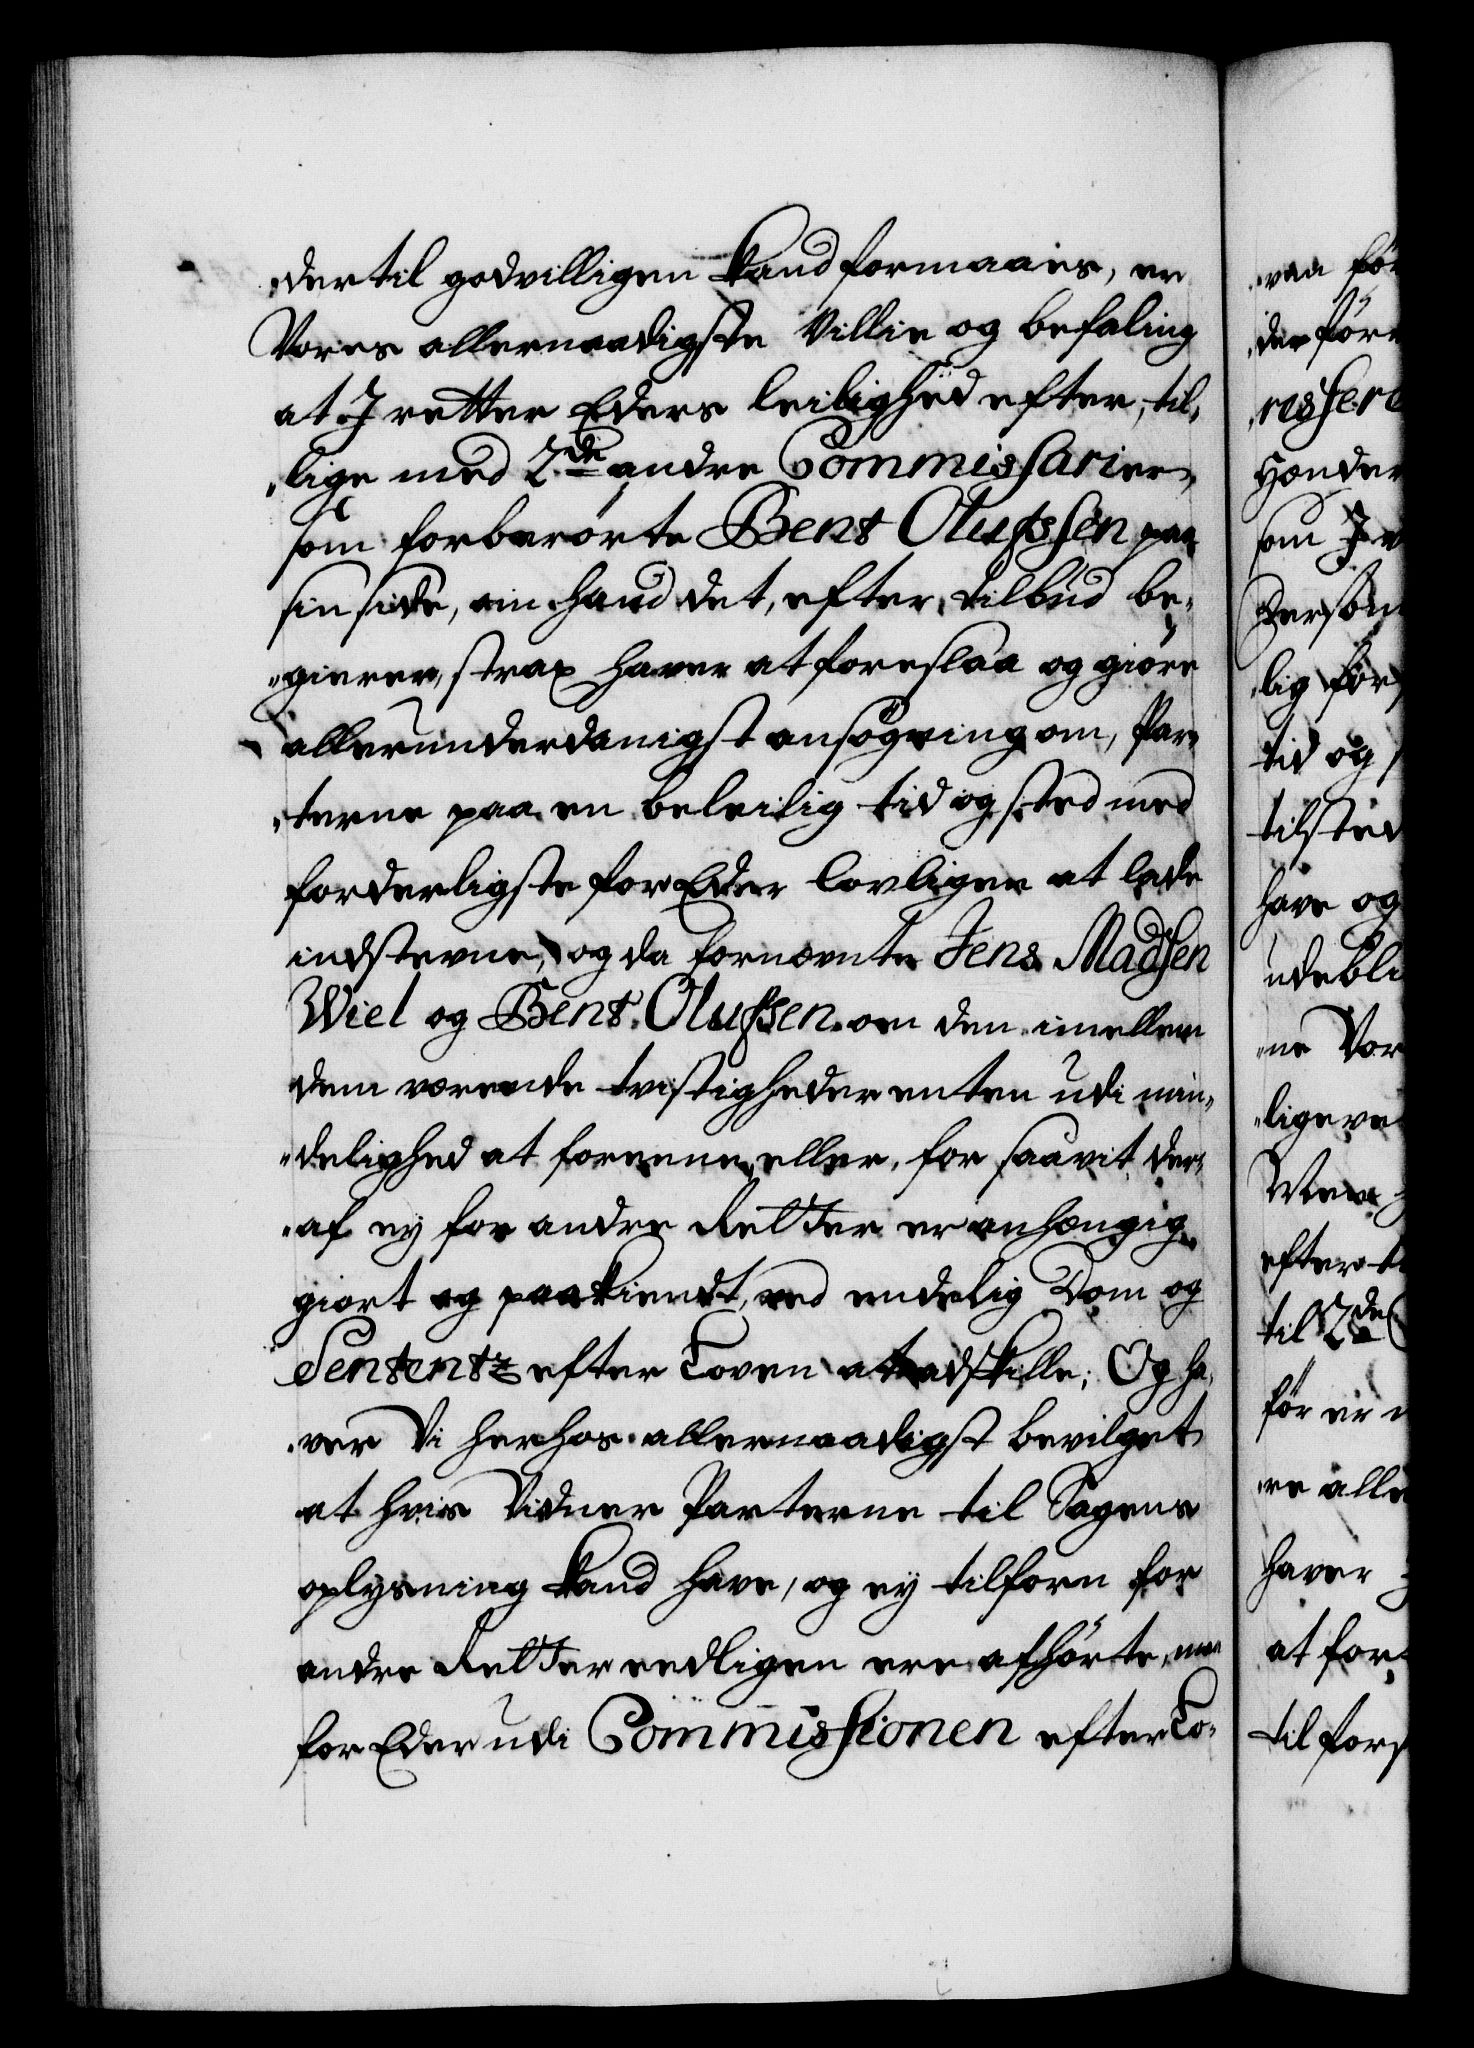 dertil godvilligen kand formaaes, er
Vores allernaadigste Villie og befaling
at I retter Eders leilighed efter, til¬
lige med 2de andre Commissarier,
som forberørte Bent Olufssen paa
sin side, om hand det, efter tilbud be¬
gierer, strax haver at foreslaa og giøre
allerunderdanigst ansøgning om, Par¬
terne paa en beleilig tid og sted med
forderligste for Eder lovligen at lade
indstevne, og da fornævnte Jens Madsen
Wiel og Bent Olufsen om den imellem
dem værende tvistigheder enten udi min¬
delighed at foreene, eller, for saavit der¬
af ey for andre Retter er anhængig
giort og paakiendt, ved endelig Dom og
Sententz efter Loven at adskille; Og ha¬
ver Vi herhos allernaadigst bevilget
at hvis Vidner Parterne til Sagens
oplysning kand have, og ey tilforn for
andre Retter eedligen ere afhørte, maa
for Eder udi Commissionen efter Lo¬
som I
tid og
have og
ne Vor
til 2de
før er
haver
at for